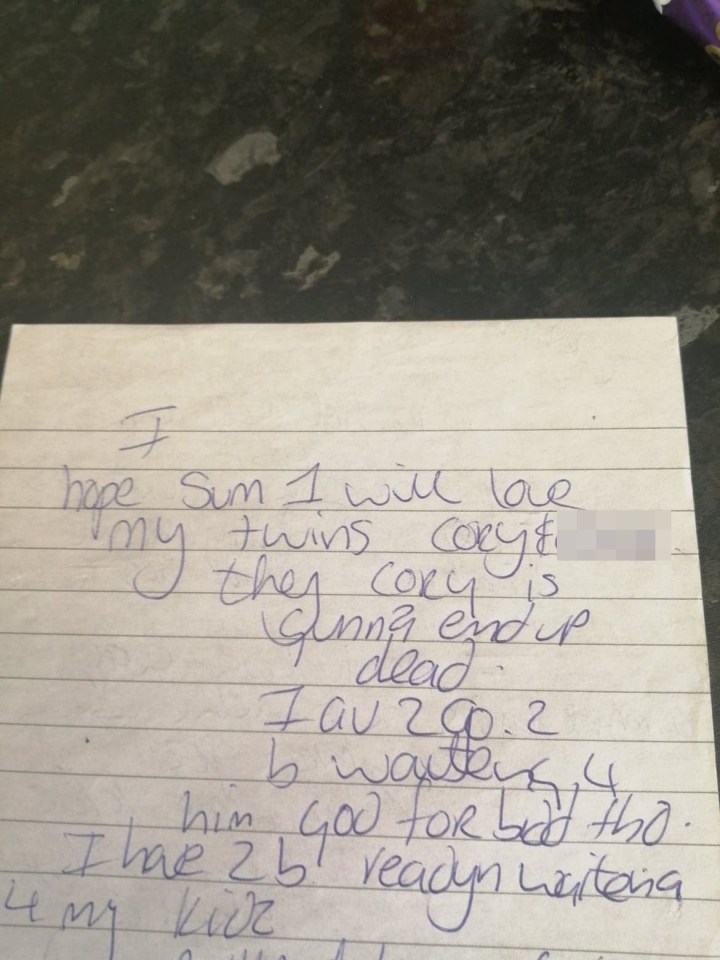 I
hope Sum 1 will love
my twins cory &
they cory is
gunna end up
dead.
I av 2 go. 2
b waiteing 4
him god for bid tho.
I have 2 b ready n waiteing
4 my kidz